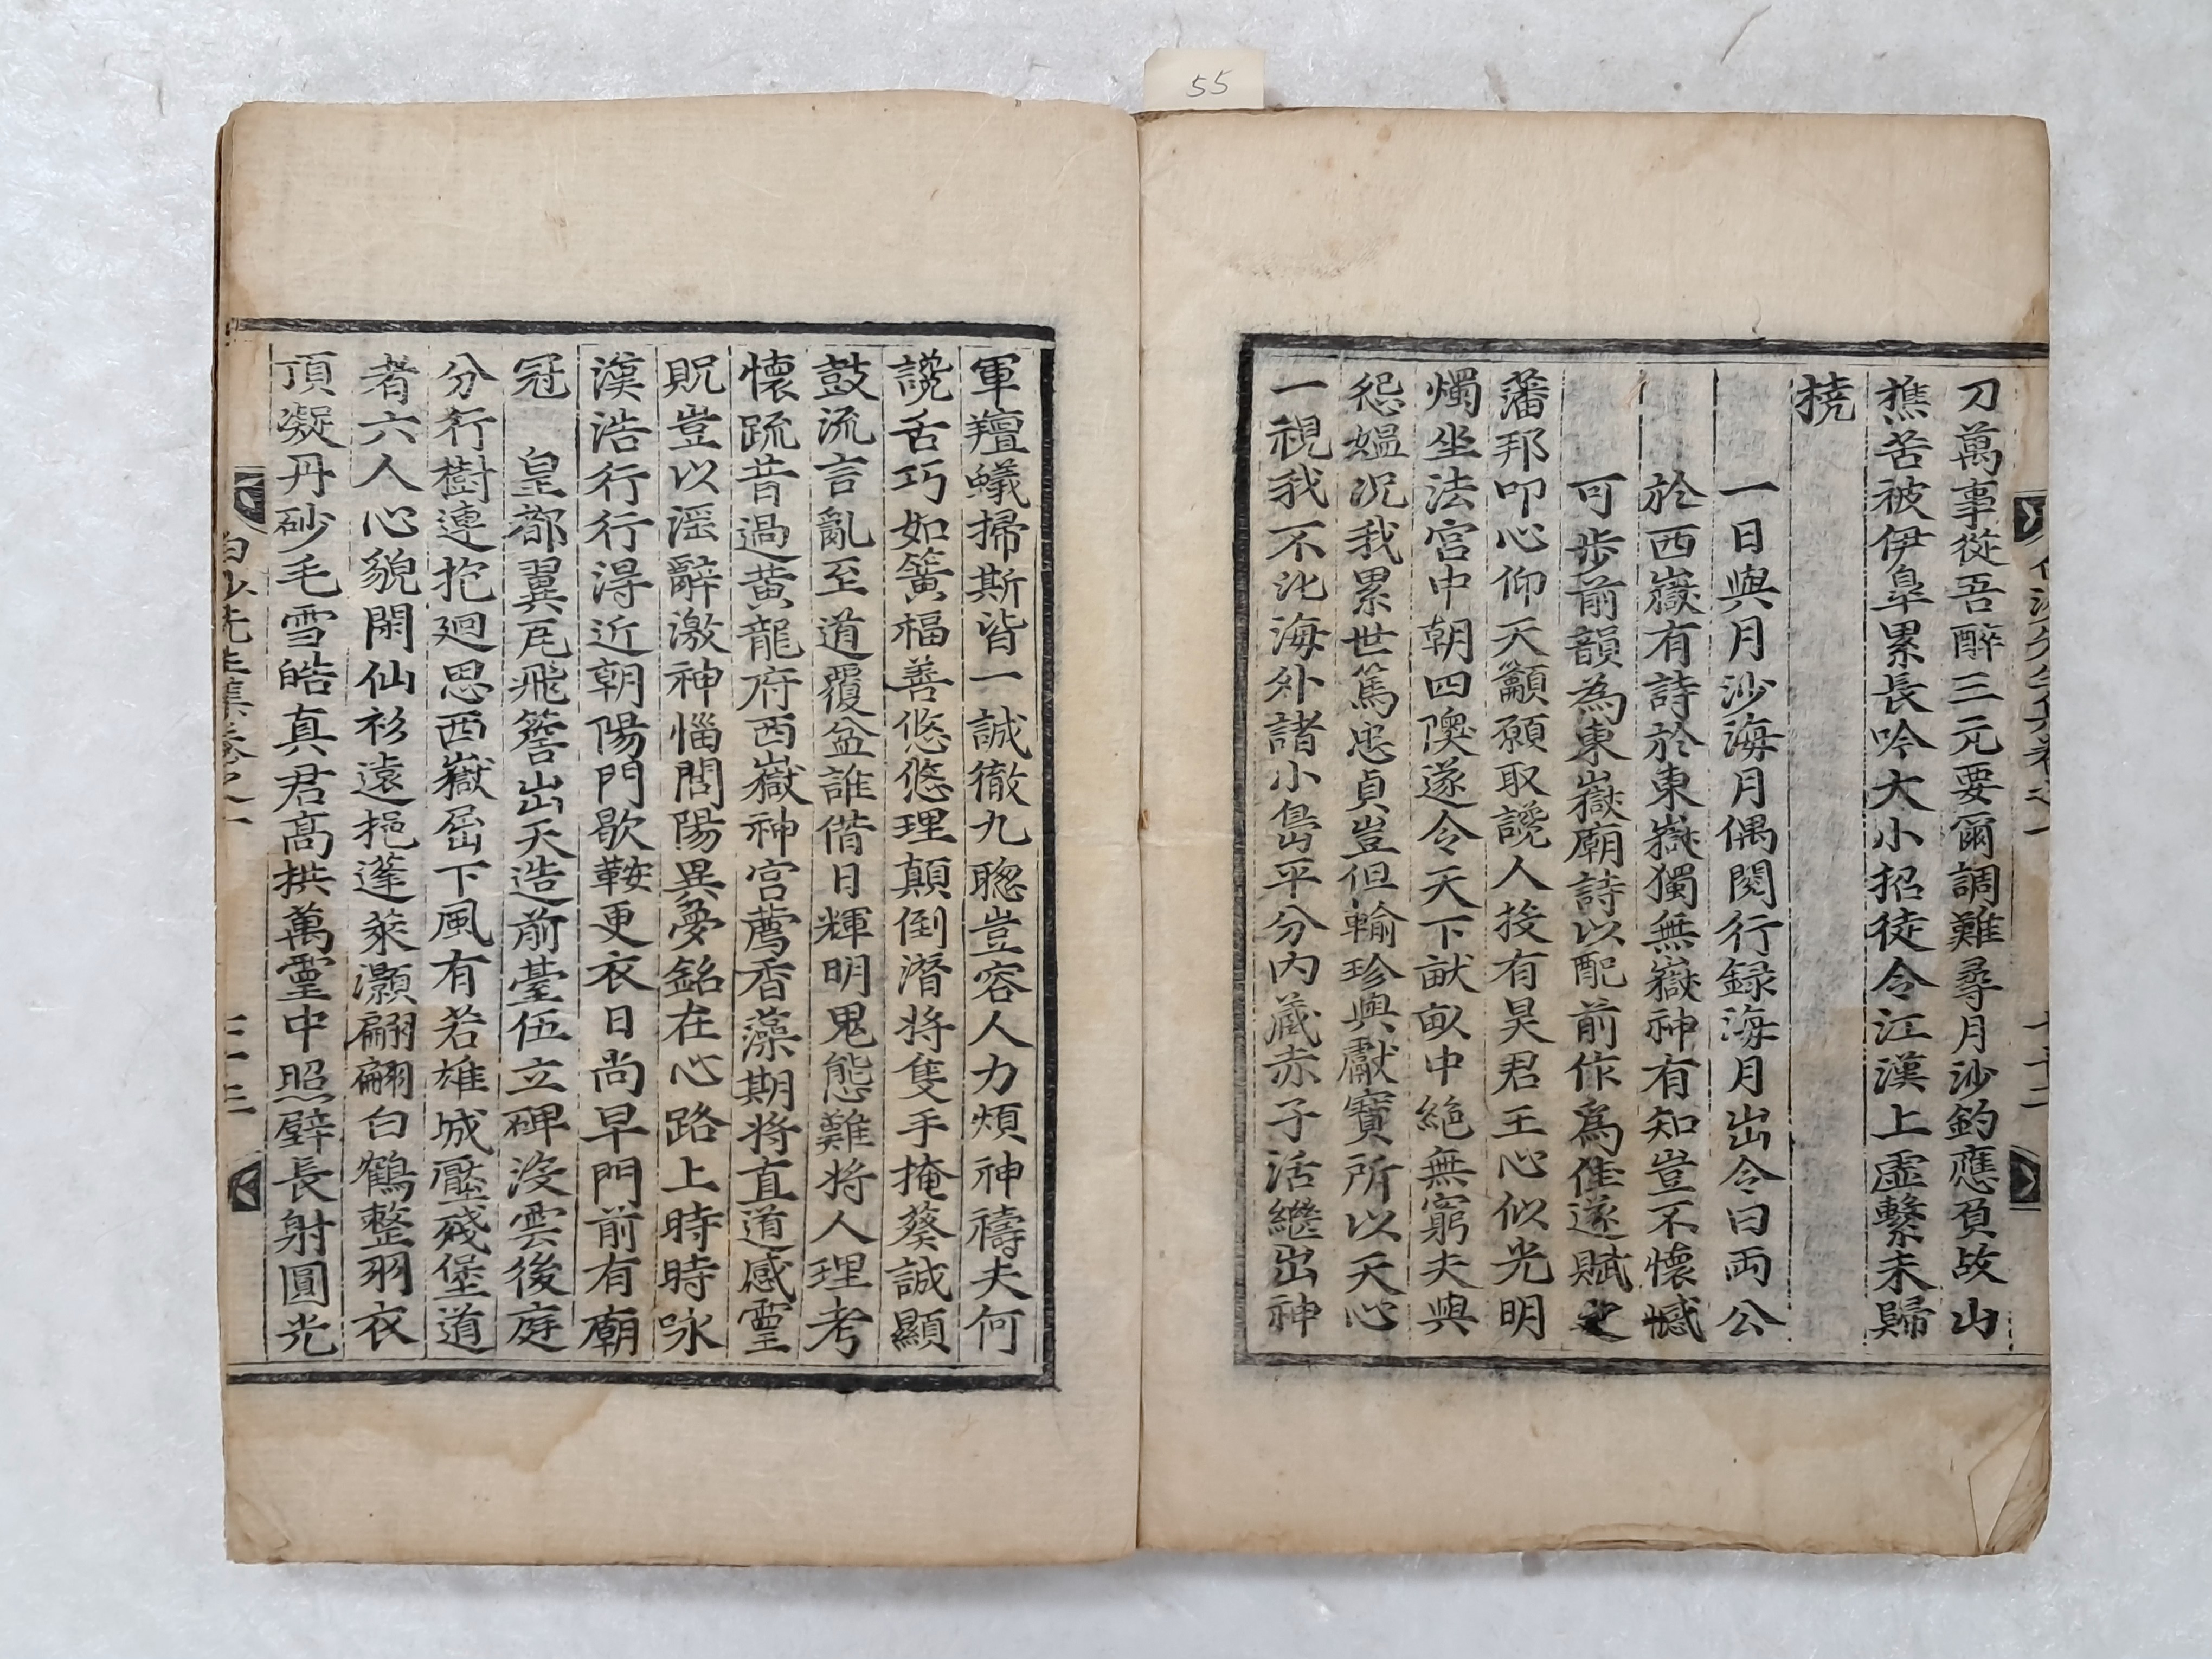 55
刀萬事從吾醉三元要爾調難尋月沙釣應負故山
樵苦被伊皐累長吟大小招徒令江漢上虛繫未歸
橈
一日與月沙海月偶閱行録海月出令曰両公
於西嶽有詩於東嶽獨無嶽神有知豈不懷憾
可步前韻為東嶽廟詩以配前作爲佳遂賦之
藩邦叩心仰天籲願取讒人投有昊君王心似光明
燭坐法宮中朝四隩遂令天下畎畝中絶無窮夫與
怨媼況我累世篤忠貞豈但輸珍與獻寶所以天心
一視我不比海外諸小島平分內藏赤子活繼出神
軍羶蟻掃斯皆一誠徹九聰豈容人力煩神禱夫何
讒舌巧如簧福善悠悠理顛倒潛將隻手掩葵誠顯
鼓流言亂至道覆盆誰借日輝明鬼態難將人理考
懷疏昔過黃龍府西嶽神宮薦香藻期將直道感靈
貺豈以滛辭激神惱問陽異夢銘在心路上時時咏
漢浩行行淂近朝陽門歇鞍更衣日尚早門前有廟
冠　皇都翼瓦飛簷出天造前臺伍立碑沒雲後庭
分行樹連抱廻思西嶽屈下風有若雄城壓殘堡道
者六人心貌閑仙衫遠挹蓬萊灝翩翩白鶴整羽衣
頂凝丹砂毛雪皓真君高拱萬靈中照壁長射圓光
白沙先生集卷之一
三十三